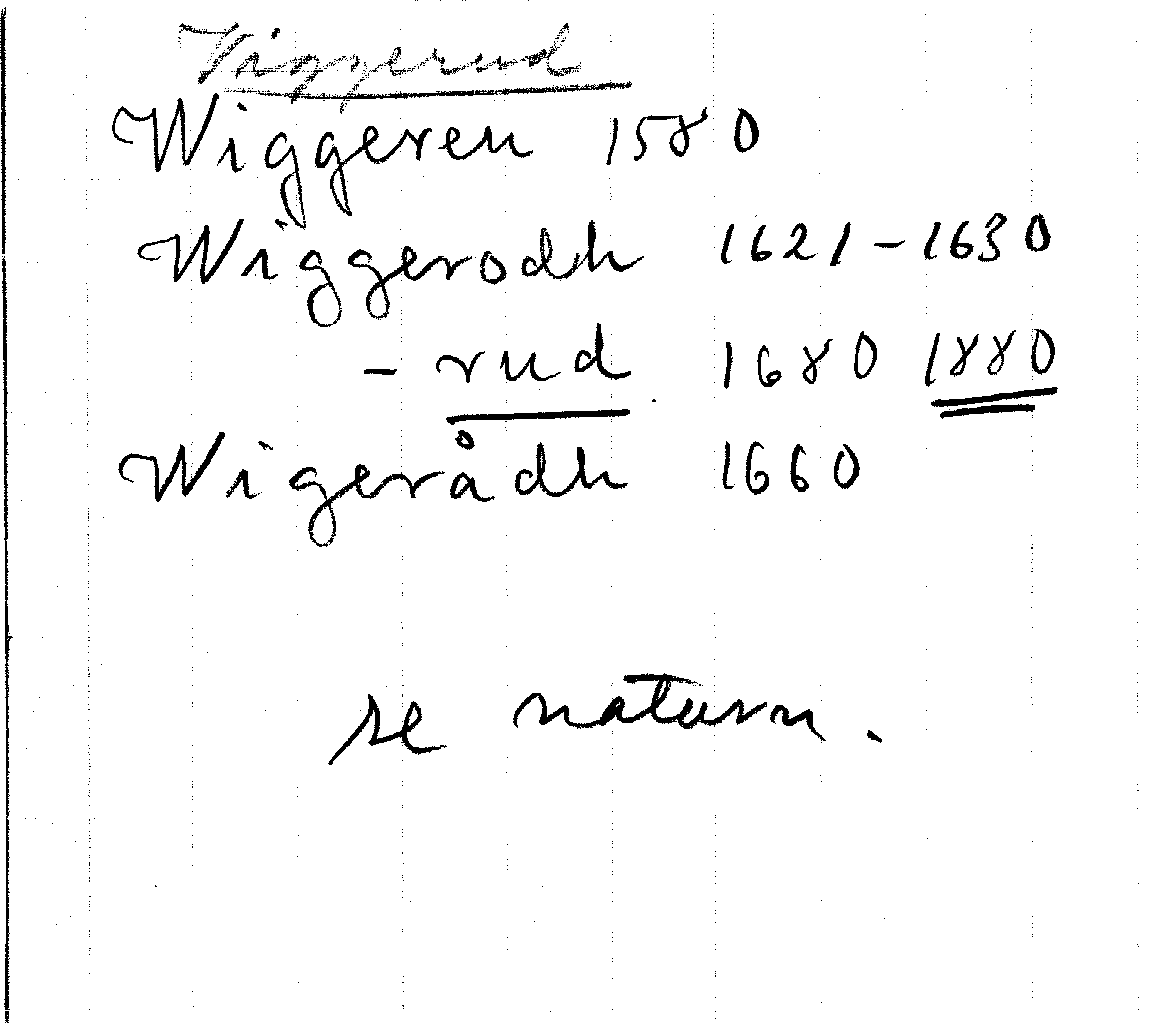 Viggerud
Wiggeren 1580
Wiggerodh 1621-1630
- rud 1680 1880
Wigerådh 1660
se naturn.